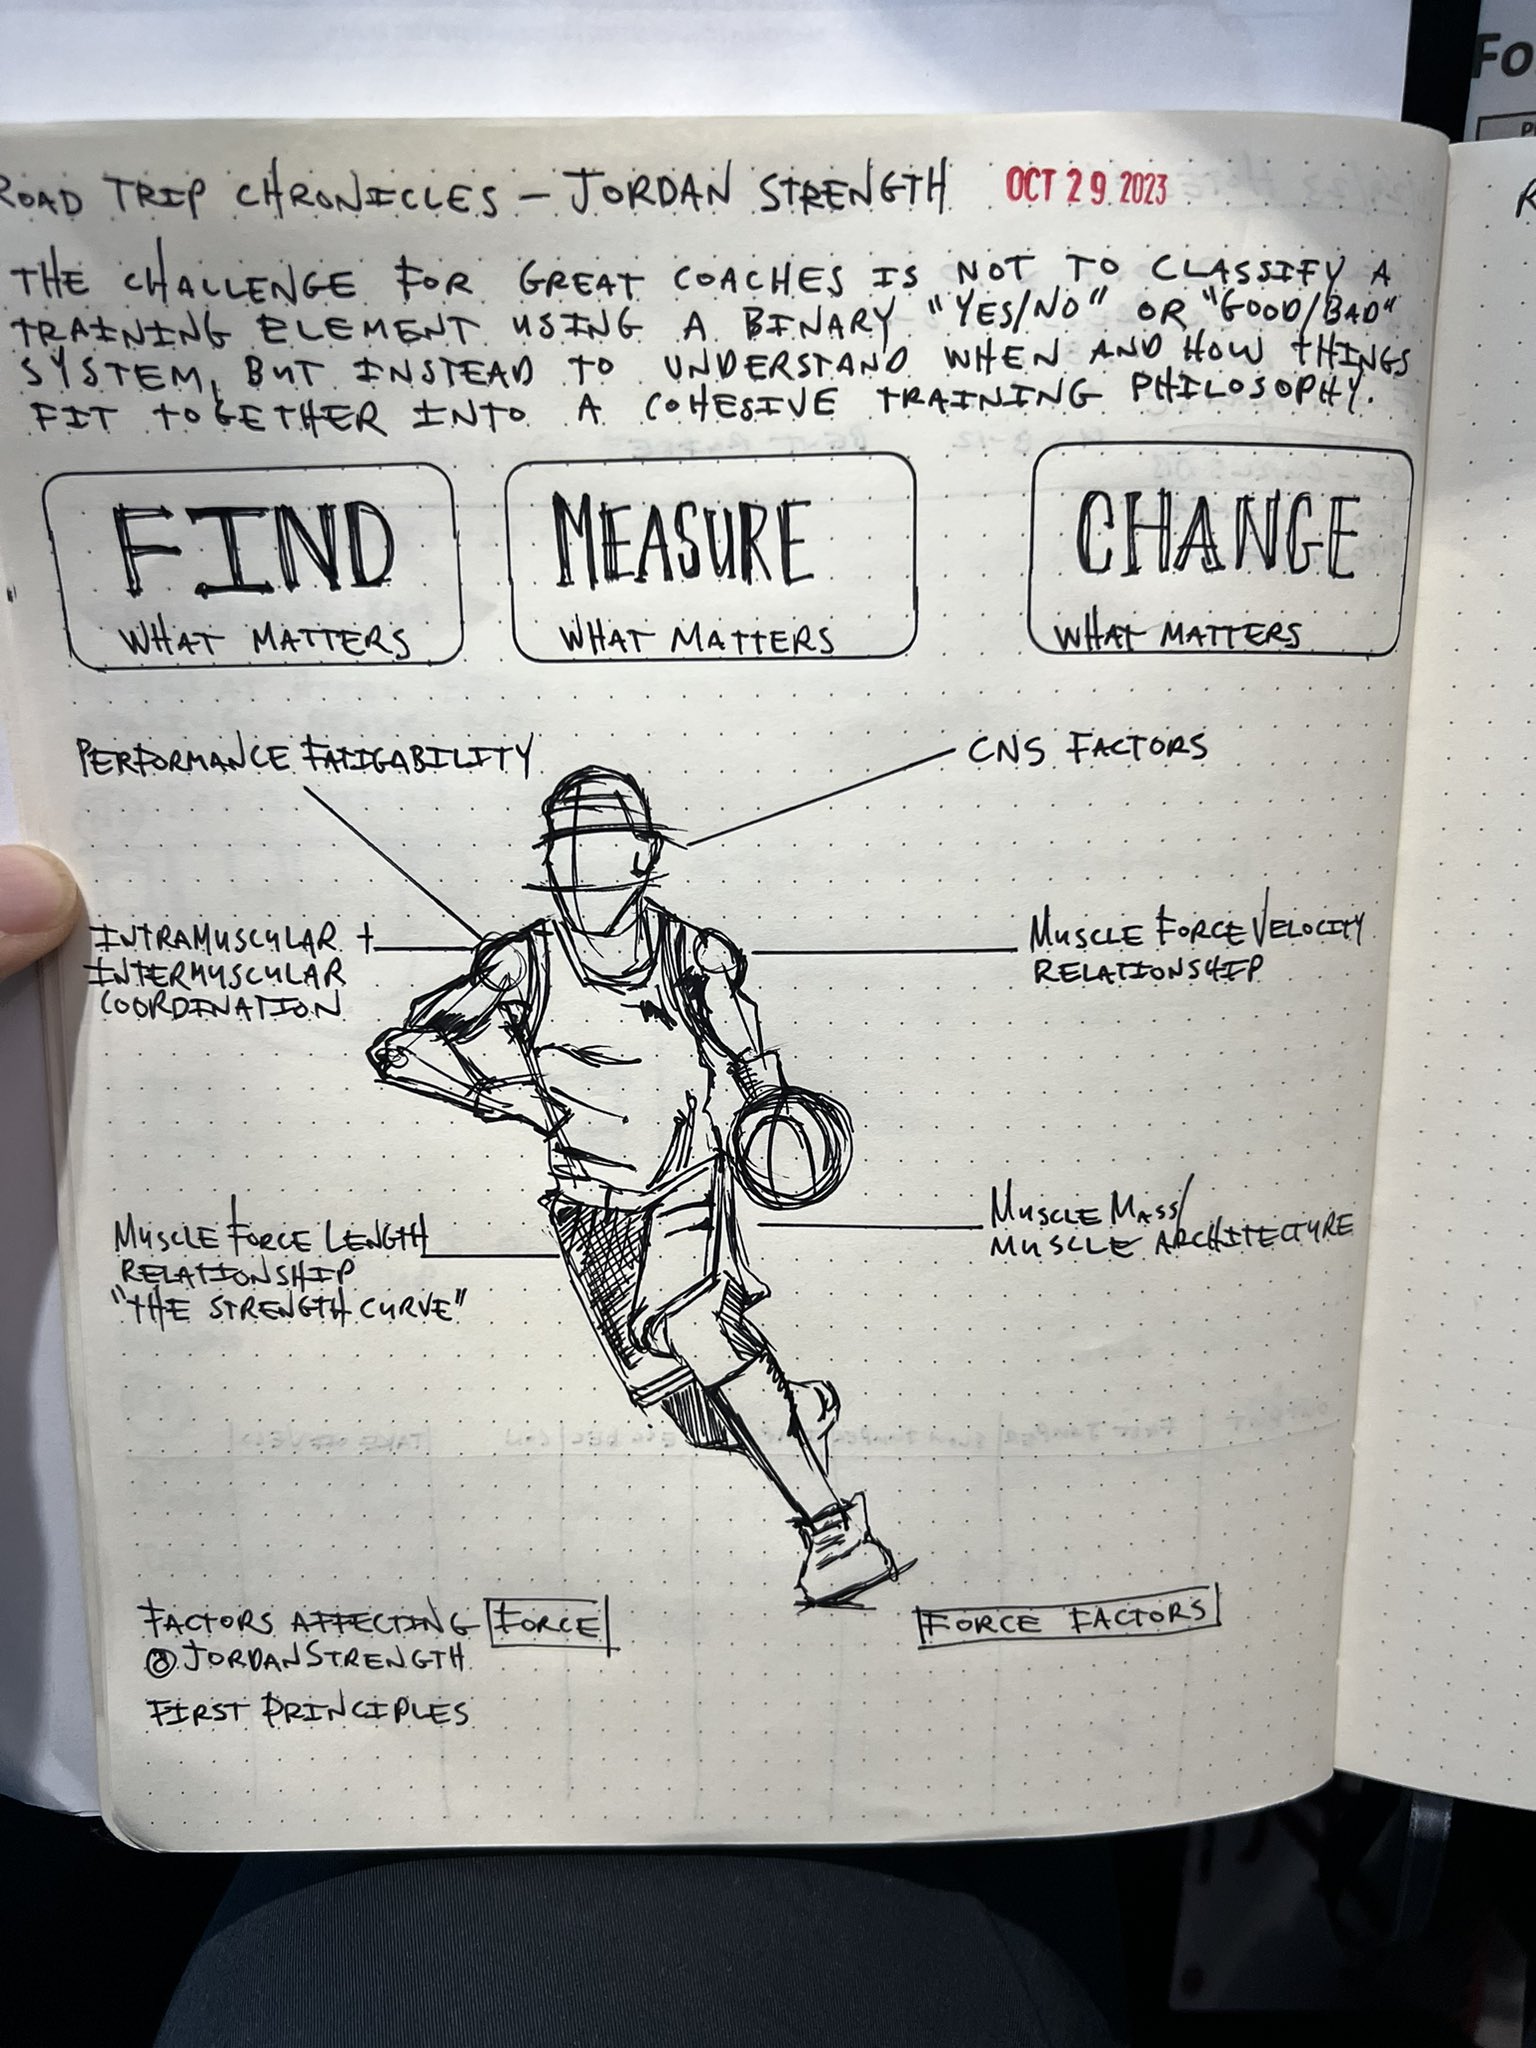 ROAD TRIP CHRONICLES - JORDAN STRENGTH OCT 29 2023
THE CHALLENGE FOR GREAT COACHES IS NOT TO CLASSIFY A
TRAINING ELEMENT USING A BINARY "YES/NO" OR "GOOD/BAD"
SYSTEM, BUT INSTEAD TO UNDERSTAND WHEN AND HOW THINGS
FIT TOGETHER INTO A COHESIVE TRAINING PHILOSOPHY.
FIND
WHAT MATTERS
MEASURE
WHAT MATTERS
CHANGE
WHAT MATTERS
PERFORMANCE FATIGABILITY
CNS FACTORS
INTRAMUSCULAR +
INTERMUSCULAR
COORDINATION
MUSCLE FORCE VELOCITY
RELATIONSHIP
MUSCLE FORCE LENGTH
RELATIONSHIP
"THE STRENGTH CURVE"
MUSCLE MASS/
MUSCLE ARCHITECTURE
FACTORS AFFECTING FORCE
@JORDANSTRENGTH
FIRST PRINCIPLES
FORCE FACTORS